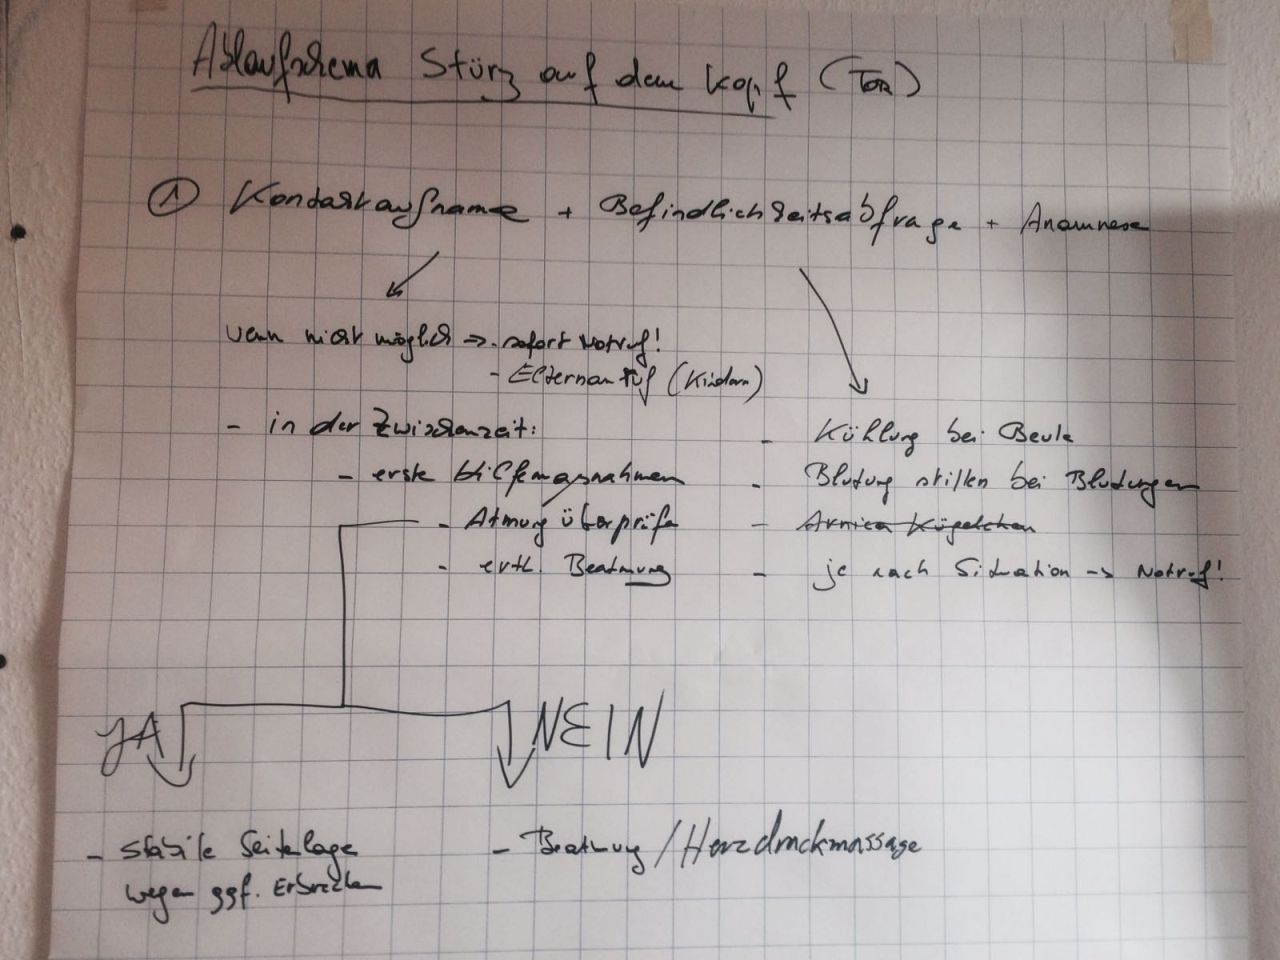 Ablaufschema Sturz auf den Kopf (Tor)
① Kontaktaufname + Befindlichkeitsabfrage + Anamnese
wenn nicht möglich => - sofort Notruf!
- Elternanruf (Kindern)
- in der Zwischenzeit:
- erste Hilfemasnahmen
- Atmung überprüfen
- evtl. Beatmung
- Kühlung bei Beule
- Blutung stillen bei Blutungen
- Arnica Kügelchen
- je nach Situation -> Notruf!
JA
NEIN
- stabile Seitenlage
wegen ggf. Erbrechen
- Beatmung / Herzdruckmassage